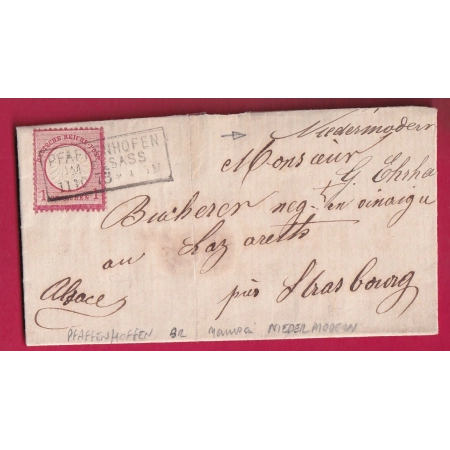 DEUTSCHE REICHS-POST
PFAFFENHOFEN
ELSASS
11 1
Niedermodern
Monsieur
G. Ehrha
Bucherer neg. en vinaigre
au Lazareth
Alsace près Strasbourg
PFAFFENHOFFEN BR Manusc. NIEDERMODERN